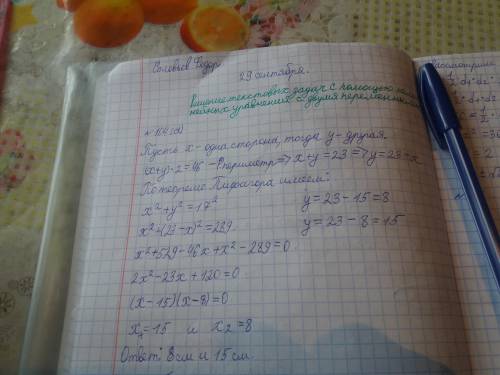 Соловьев Федор
29 сентября.
Решение текстовых задач с помощью
нейных уравнениях с двумя переменными
№ 164 (а)
Пусть x - одна сторона, тогда y - другая.
(x+y)·2=46 - Периметр => x+y=23 => y=23-x
По теореме Пифагора имеем:
x²+y²=17²
x²+(23-x)²=289
x²+529-46x+x²-289=0
2x²-23x+120=0
(x-15)(x-8)=0
x₁=15 и x₂=8
Ответ: 8 см и 15 см.
y=23-15=8
y=23-8=15